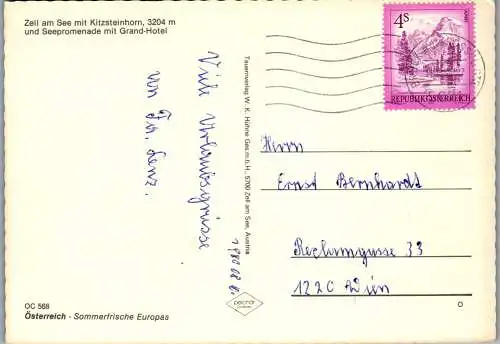 Zell am See mit Kitzsteinhorn, 3204 m
und Seepromenade mit Grand-Hotel
Viele Urlaubsgrüsse
von Fam. Lenz.
OC 568
Österreich - Sommerfrische Europas
Tauernverlag W. K. Hühne Ges.m.b.H., 5700 Zell am See, Austria
4 S
REPUBLIK ÖSTERREICH
Herrn
Ernst Bernhardt
33
122C Wien